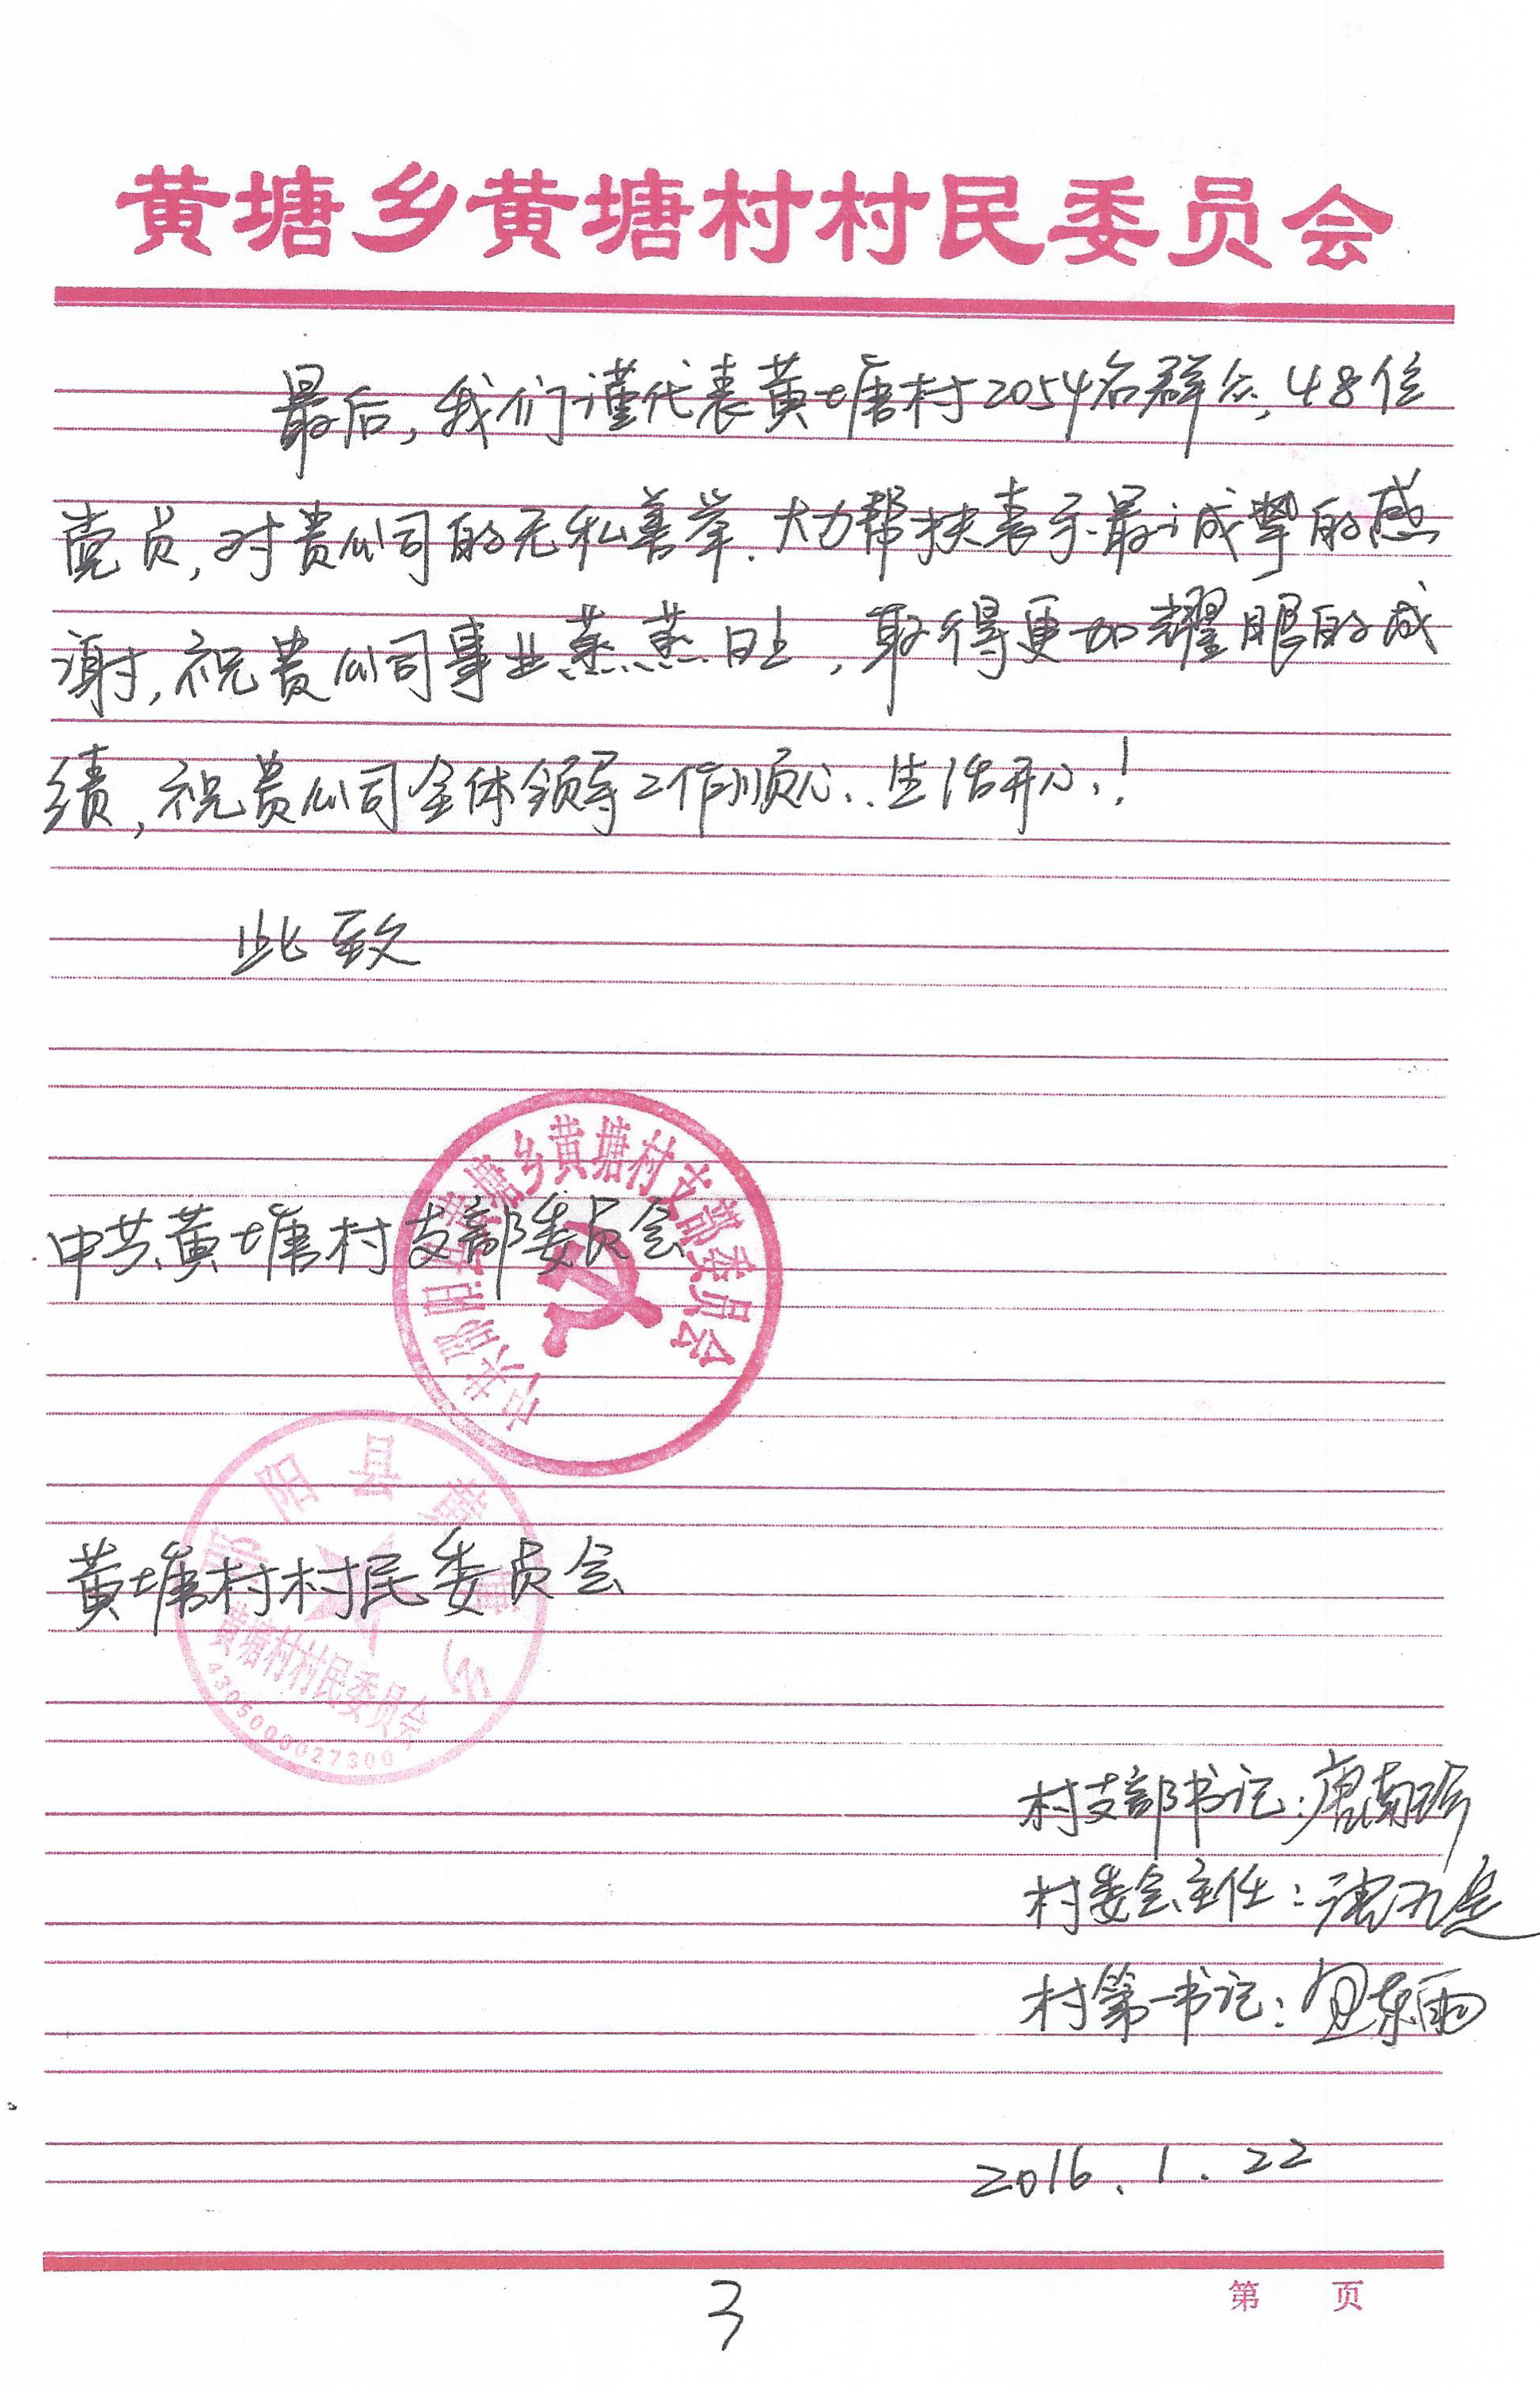 黄塘乡黄塘村村民委员会
最后,我们谨代表黄塘村2054名群众,48位
党员,对贵公司的无私善举.大力帮扶表示最诚挚的感
谢,祝贵公司事业蒸蒸日上,取得更加耀眼的成
绩,祝贵公司全体领导工作顺心.生活开心!
此致
中共邵阳县黄塘乡黄塘村支部委员会
中共黄塘村支部委员会
邵阳县黄塘乡
黄塘村村民委员会
黄塘村村民委员会
4305000027300
村支部书记:唐南
村委会主任:
村第一书记:贺东雨
2016.1.22
第 页
3